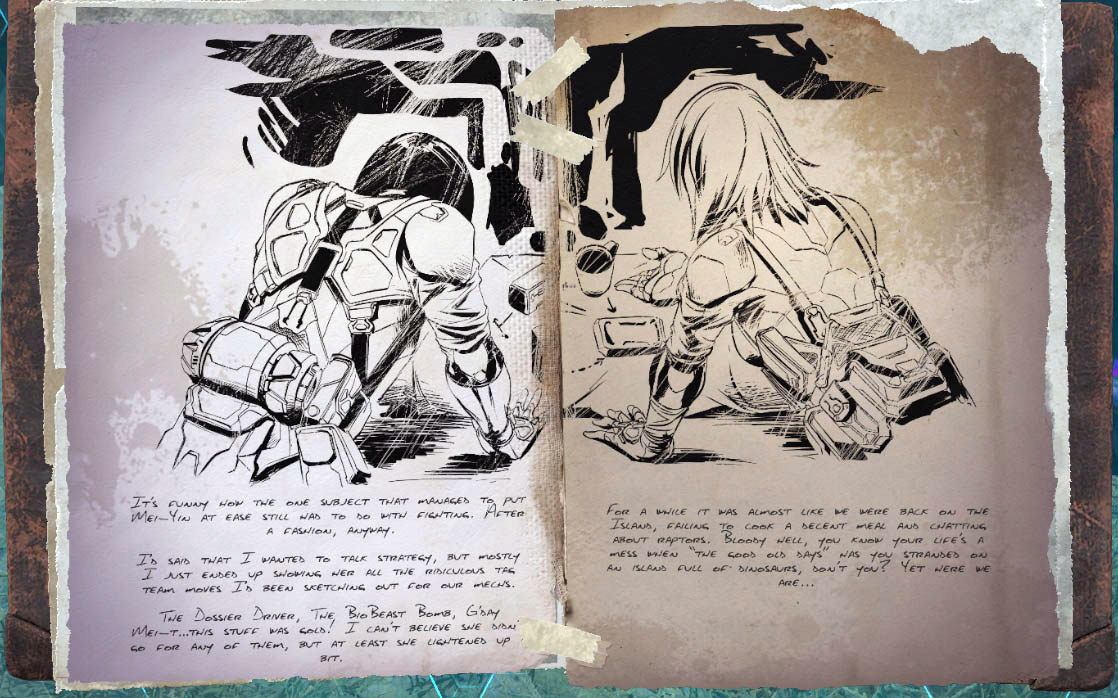 It's funny how the one subject that managed to put
Mei-Yin at ease still had to do with fighting. After
a fashion, anyway.
I'd said that I wanted to talk strategy, but mostly
I just ended up showing her all the ridiculous tag
team moves I'd been sketching out for our mechs.
The Dossier Driver, The BioBeast Bomb, G'day
Mei-t...this stuff was gold! I can't believe she didn'
go for any of them, but at least she lightened up
bit.
For a while it was almost like we were back on the
Island, failing to cook a decent meal and chatting
about raptors. Bloody hell, you know your life's a
mess when "the good old days" was you stranded on
an island full of dinosaurs, don't you? Yet here we
are...